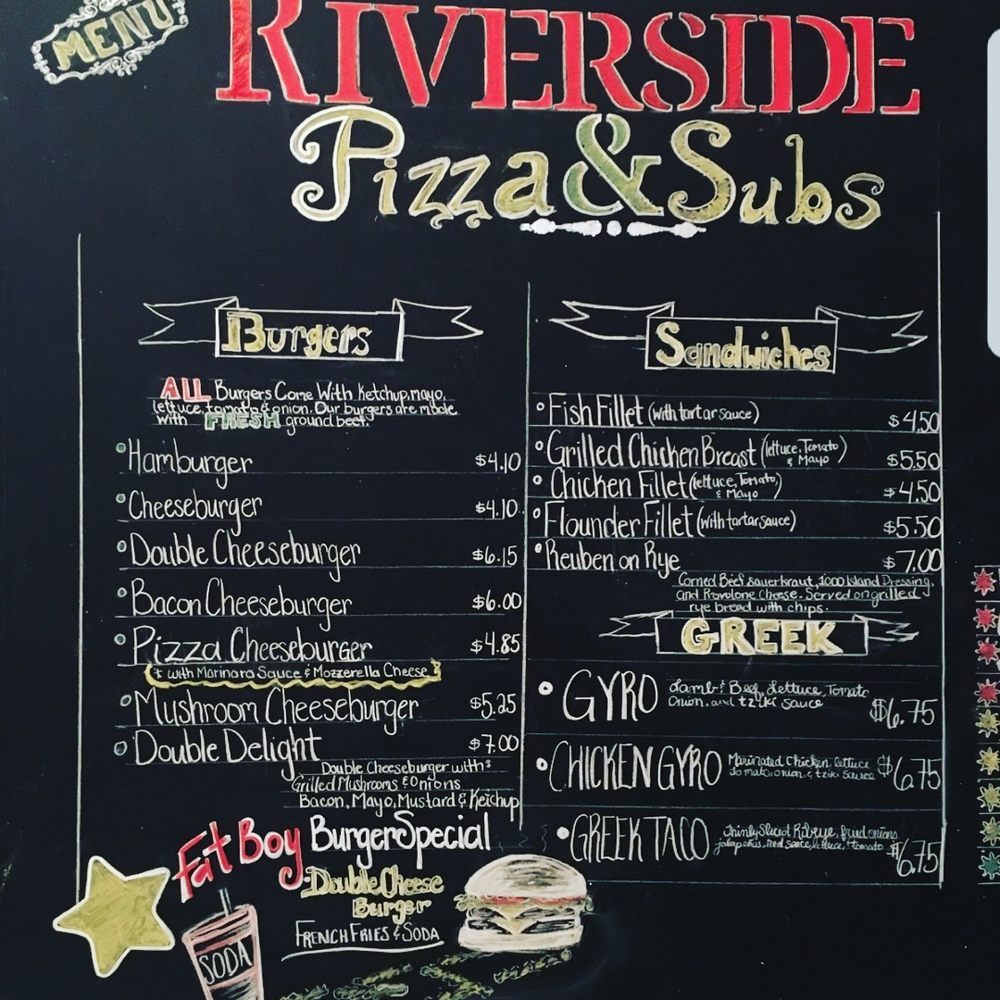 MENU
RIVERSIDE
Pizza & Subs
Burgers
ALL Burgers Come With ketchup, mayo,
lettuce, tomato & onion. Our burgers are made
with FRESH ground beef.
Hamburger $4.10
Cheeseburger $4.10
Double Cheeseburger $6.15
Bacon Cheeseburger $6.00
Pizza Cheeseburger $4.85
* with Marinara Sauce & Mozzerella Cheese
Mushroom Cheeseburger $5.25
Double Delight $7.00
Double Cheeseburger with:
Grilled Mushrooms & Onions
Bacon, Mayo, Mustard & Ketchup
Fat Boy Burger Special
Double Cheese
Burger
FRENCH FRIES & SODA
SODA
Sandwiches
Fish Fillet (with tartar sauce) $4.50
Grilled Chicken Breast (lettuce, Tomato & Mayo) $5.50
Chicken Fillet (lettuce, Tomato, & Mayo) $4.50
Flounder Fillet (with tartar sauce) $5.50
Reuben on Rye $7.00
Corned Beef sauerkraut, 1000 Island Dressing,
and Provolone Cheese. Served on grilled
rye bread with chips.
GREEK
GYRO Lamb & Beef, Lettuce, Tomato
Onion, and tziki sauce $6.75
CHICKEN GYRO Marinated chicken, lettuce
tomato, onion, & tziki sauce $6.75
GREEK TACO Thinly Sliced Ribeye, fried onions
jalapeños, red sauce, lettuce, tomato $6.75